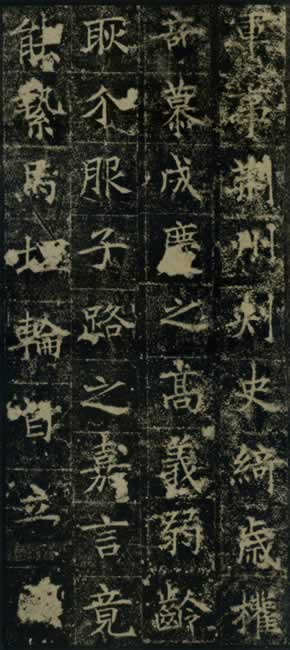 軍事荊州刺史綺歲權
奇慕成慶之高義弱齡
耿介服子路之嘉言竟
能縶馬埋輪自立